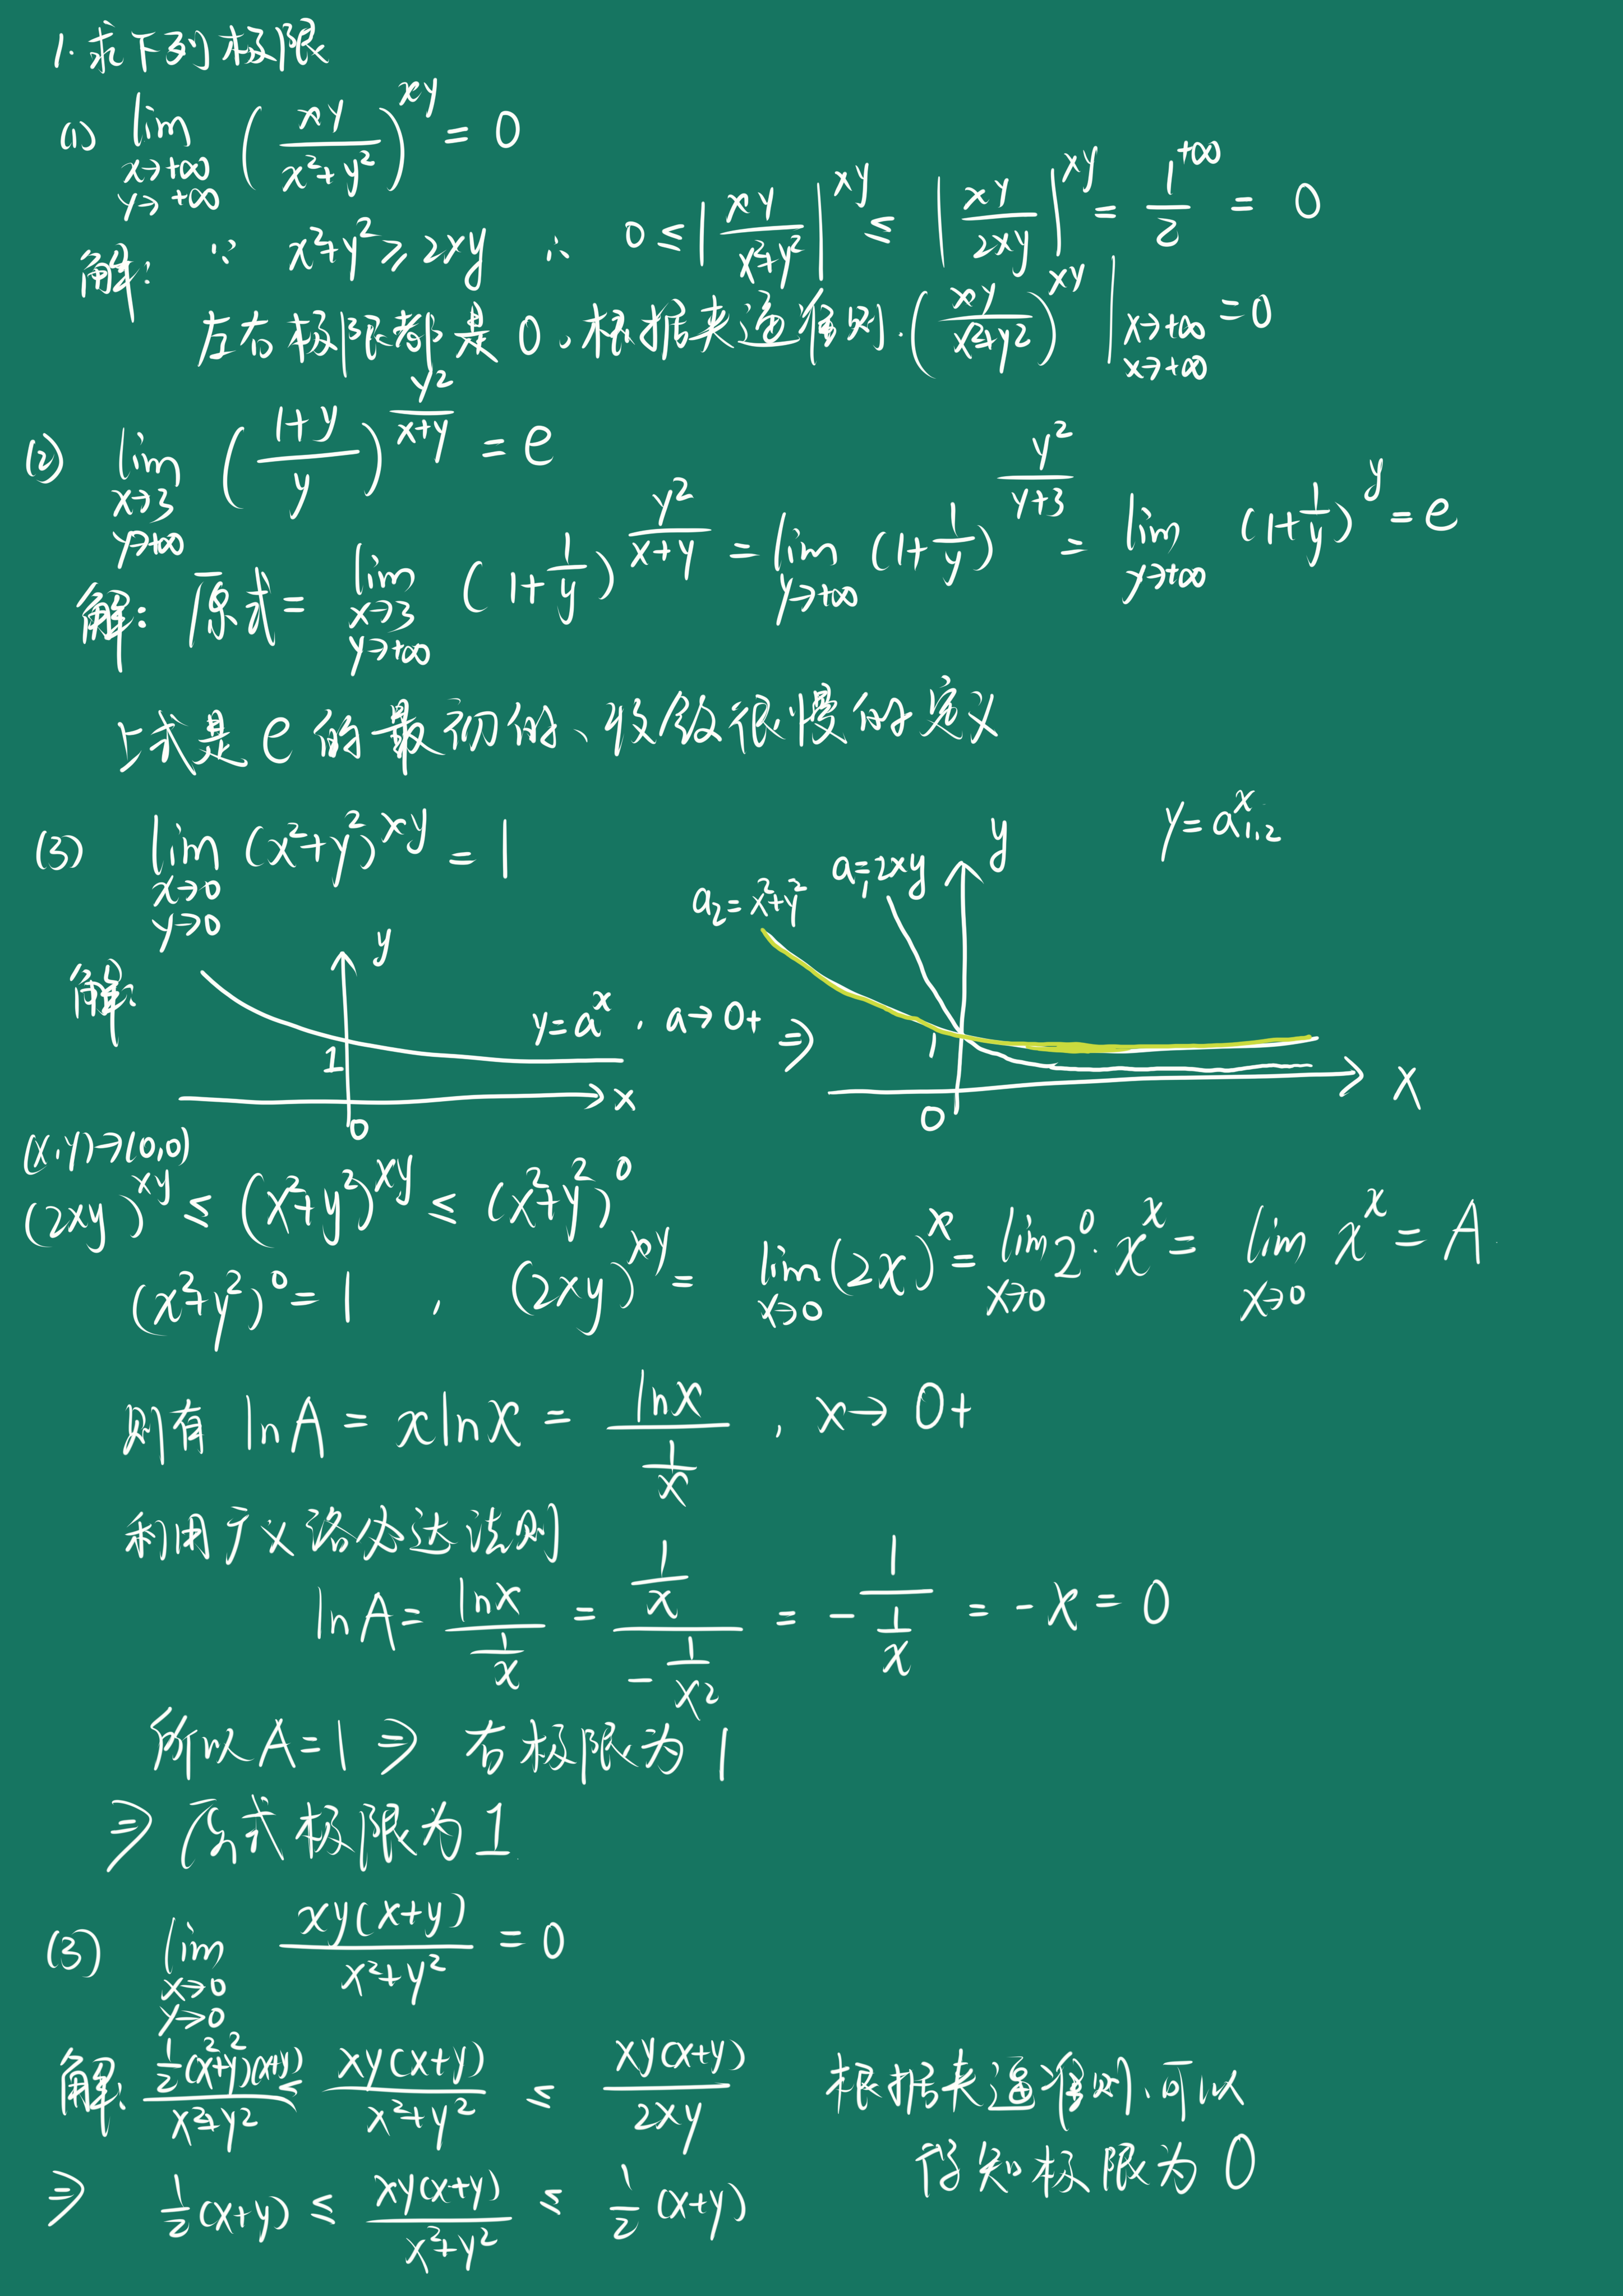 1. 求下列极限
(1) lim x→+∞ y→+∞ (xy/(x²+y²))^(xy) = 0
解: ∵ x²+y² ≥ 2xy ∴ 0 ≤ |xy/(x²+y²)|^(xy) ≤ |xy/(2xy)|^(xy) = 1/2^(+∞) = 0
左右极限都是0。根据夹逼准则.(xy/(x²+y²))^(xy) | x→+∞ x→+∞ = 0
(2) lim x→3 y→+∞ ((1+y)/y)^(y²/(x+y)) = e
解: 原式 = lim x→3 y→+∞ (1+1/y)^(y²/(x+y)) = lim y→+∞ (1+1/y)^(y²/(y+3)) = lim y→+∞ (1+1/y)^y = e
上式是e的最初的、收敛很慢的定义
(3) lim x→0 y→0 (x²+y²)^(xy) = 1
y = a₁,₂^x
a₂=x²+y² a₁=2xy y
解: y 1 0 x y=a^x, a→0+ ⇒ 1 0 x
(x,y)→(0,0)
(2xy)^(xy) ≤ (x²+y²)^(xy) ≤ (x²+y²)^0
(x²+y²)^0 = 1 , (2xy)^(xy) = lim x→0 (2x)^x = lim x→0 2^0·x^x = lim x→0 x^x = A
则有 lnA = xlnx = lnx/(1/x) , x→0+
利用广义洛必达法则
lnA = lnx/(1/x) = (1/x)/(-1/x²) = -1/(1/x) = -x = 0
所以A=1 ⇒ 右极限为1
⇒ 原式极限为1
(3) lim x→0 y→0 xy(x+y)/(x²+y²) = 0
解: ½(x²+y²)(x+y)/(x²+y²) ≤ xy(x+y)/(x²+y²) ≤ xy(x+y)/(2xy) 根据夹逼准则,可以
⇒ ½(x+y) ≤ xy(x+y)/(x²+y²) ≤ ½(x+y) 得知极限为0